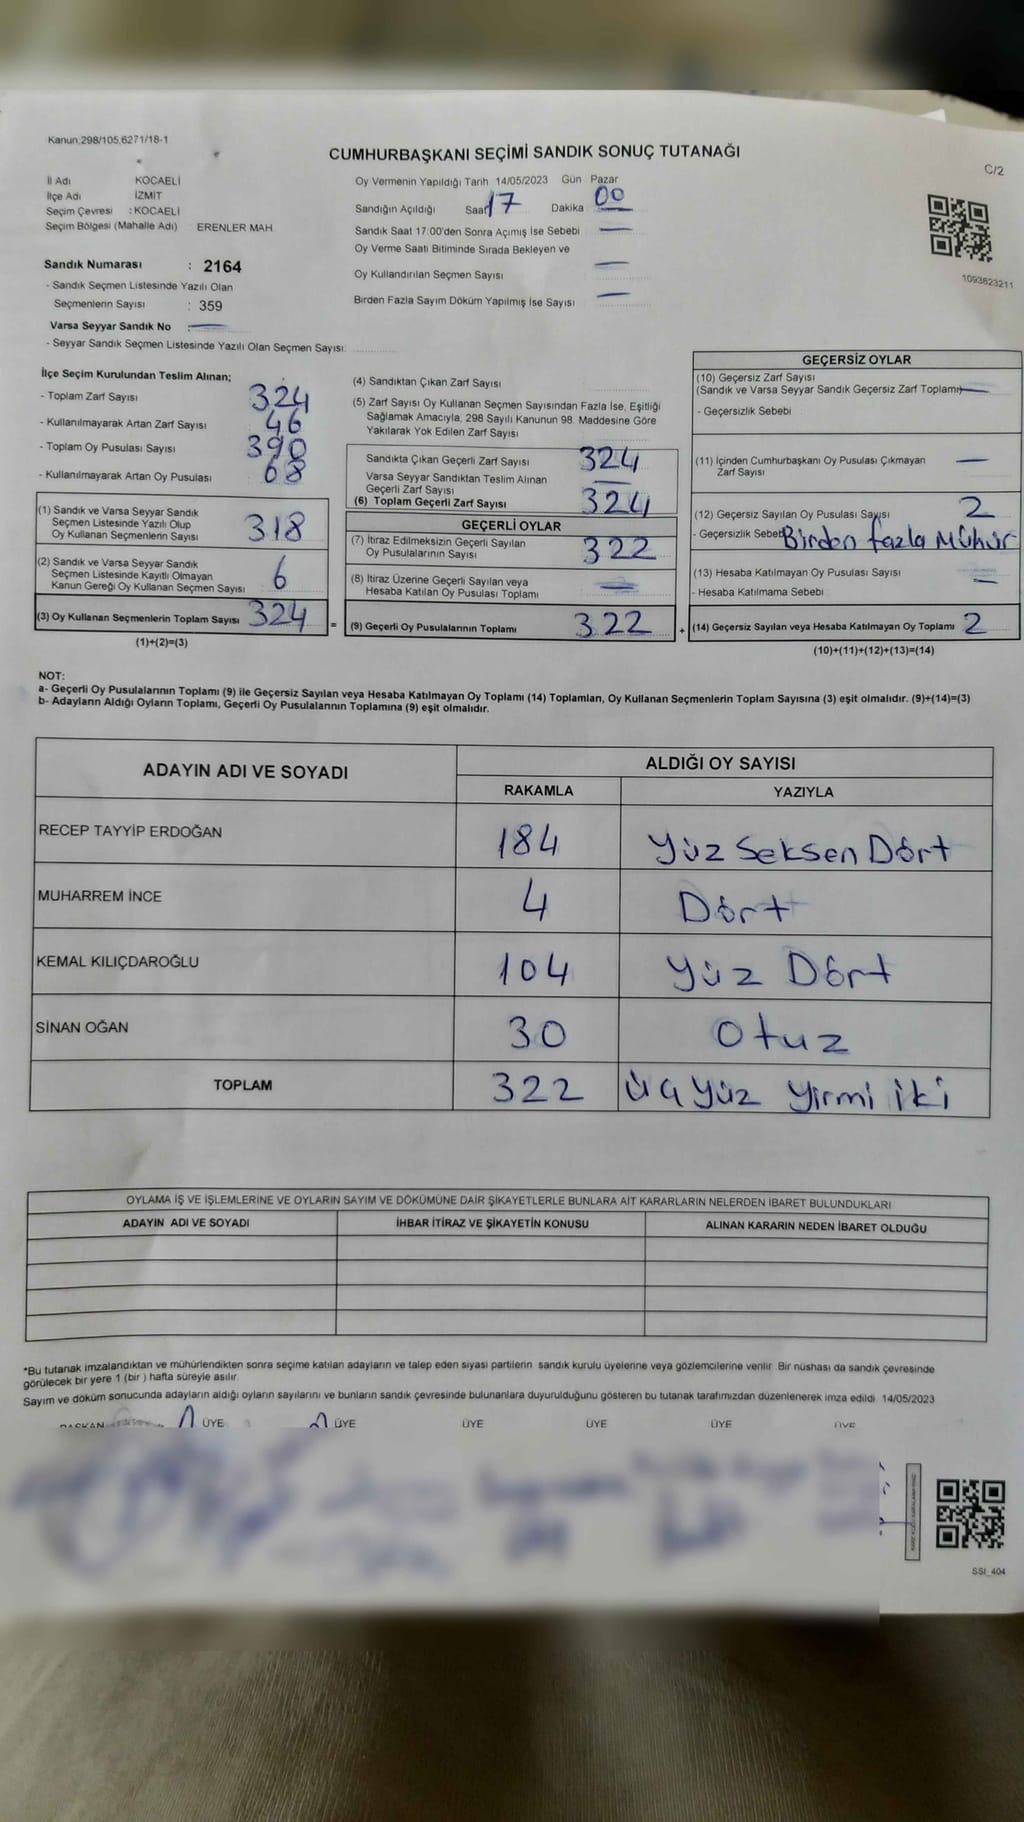 Kanun:298/105,6271/18-1
CUMHURBAŞKANI SEÇİMİ SANDIK SONUÇ TUTANAĞI
C/2
İl Adı KOCAELİ
İlçe Adı İZMİT
Seçim Çevresi : KOCAELİ
Seçim Bölgesi (Mahalle Adı) ERENLER MAH.
Sandık Numarası : 2164
- Sandık Seçmen Listesinde Yazılı Olan
Seçmenlerin Sayısı : 359
Varsa Seyyar Sandık No : —
- Seyyar Sandık Seçmen Listesinde Yazılı Olan Seçmen Sayısı:
Oy Vermenin Yapıldığı Tarih 14/05/2023 Gün Pazar
Sandığın Açıldığı Saat 17 Dakika 00
Sandık Saat 17:00'den Sonra Açımış İse Sebebi —
Oy Verme Saati Bitiminde Sırada Bekleyen ve
Oy Kullandırılan Seçmen Sayısı —
Birden Fazla Sayım Döküm Yapılmış İse Sayısı —
1093623211
İlçe Seçim Kurulundan Teslim Alınan;
- Toplam Zarf Sayısı 324
- Kullanılmayarak Artan Zarf Sayısı 46
- Toplam Oy Pusulası Sayısı 390
- Kullanılmayarak Artan Oy Pusulası 68
(1) Sandık ve Varsa Seyyar Sandık
Seçmen Listesinde Yazılı Olup
Oy Kullanan Seçmenlerin Sayısı 318
(2) Sandık ve Varsa Seyyar Sandık
Seçmen Listesinde Kayıtlı Olmayan
Kanun Gereği Oy Kullanan Seçmen Sayısı 6
(3) Oy Kullanan Seçmenlerin Toplam Sayısı 324
(1)+(2)=(3)
(4) Sandıktan Çıkan Zarf Sayısı
(5) Zarf Sayısı Oy Kullanan Seçmen Sayısından Fazla İse, Eşitliği
Sağlamak Amacıyla, 298 Sayılı Kanunun 98. Maddesine Göre
Yakılarak Yok Edilen Zarf Sayısı
Sandıkta Çıkan Geçerli Zarf Sayısı 324
Varsa Seyyar Sandıktan Teslim Alınan
Geçerli Zarf Sayısı —
(6) Toplam Geçerli Zarf Sayısı 324
GEÇERLİ OYLAR
(7) İtiraz Edilmeksizin Geçerli Sayılan
Oy Pusulalarının Sayısı 322
(8) İtiraz Üzerine Geçerli Sayılan veya
Hesaba Katılan Oy Pusulası Toplamı —
= (9) Geçerli Oy Pusulalarının Toplamı 322
GEÇERSİZ OYLAR
(10) Geçersiz Zarf Sayısı
(Sandık ve Varsa Seyyar Sandık Geçersiz Zarf Toplamı) —
- Geçersizlik Sebebi
(11) İçinden Cumhurbaşkanı Oy Pusulası Çıkmayan —
Zarf Sayısı
(12) Geçersiz Sayılan Oy Pusulası Sayısı 2
- Geçersizlik Sebebi Birden fazla Mühür
(13) Hesaba Katılmayan Oy Pusulası Sayısı —
- Hesaba Katılmama Sebebi
+ (14) Geçersiz Sayılan veya Hesaba Katılmayan Oy Toplamı 2
(10)+(11)+(12)+(13)=(14)
NOT:
a- Geçerli Oy Pusulalarının Toplamı (9) ile Geçersiz Sayılan veya Hesaba Katılmayan Oy Toplamı (14) Toplamları, Oy Kullanan Seçmenlerin Toplam Sayısına (3) eşit olmalıdır. (9)+(14)=(3)
b- Adayların Aldığı Oyların Toplamı, Geçerli Oy Pusulalarının Toplamına (9) eşit olmalıdır.
ADAYIN ADI VE SOYADI ALDIĞI OY SAYISI
RAKAMLA YAZIYLA
RECEP TAYYİP ERDOĞAN 184 Yüz Seksen Dört
MUHARREM İNCE 4 Dört
KEMAL KILIÇDAROĞLU 104 Yüz Dört
SİNAN OĞAN 30 Otuz
TOPLAM 322 Üçyüz Yirmi iki
OYLAMA İŞ VE İŞLEMLERİNE VE OYLARIN SAYIM VE DÖKÜMÜNE DAİR ŞİKAYETLERLE BUNLARA AİT KARARLARIN NELERDEN İBARET BULUNDUKLARI
ADAYIN ADI VE SOYADI İHBAR İTİRAZ VE ŞİKAYETİN KONUSU ALINAN KARARIN NEDEN İBARET OLDUĞU
*Bu tutanak imzalandıktan ve mühürlendikten sonra seçime katılan adayların ve talep eden siyasi partilerin sandık kurulu üyelerine veya gözlemcilerine verilir. Bir nüshası da sandık çevresinde
görülecek bir yere 1 (bir) hafta süreyle asılır.
Sayım ve döküm sonucunda adayların aldığı oyların sayılarını ve bunların sandık çevresinde bulunanlara duyurulduğunu gösteren bu tutanak tarafımızdan düzenlenerek imza edildi. 14/05/2023
BAŞKAN ÜYE ÜYE ÜYE ÜYE ÜYE ÜYE
SSI_404